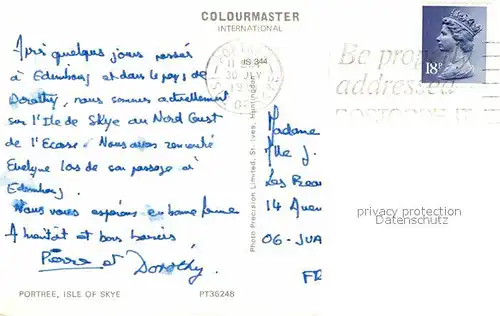 COLOURMASTER
INTERNATIONAL
Après quelques jours passés
à Edimbourg et dans le pays de
Dorothy, nous sommes actuellement
sur l'Ile de Skye au Nord Ouest
de l'Ecosse. Nous avons rencontré
Evelyne lors de son passage à
Edimbourg.
Nous vous espérons en bonne forme
A bientôt et bons baisers
Pierre et Dorothy.
PORTREE, ISLE OF SKYE
PT36248
Photo Precision Limited, St. Ives, Huntingdon
PORTREE
30 JLY
Be properly
addressed
POSTCODE IT
18P
Madame
Mlle J.
Les Beau
14 Avenu
06-JUA
FR
privacy protection
Datenschutz